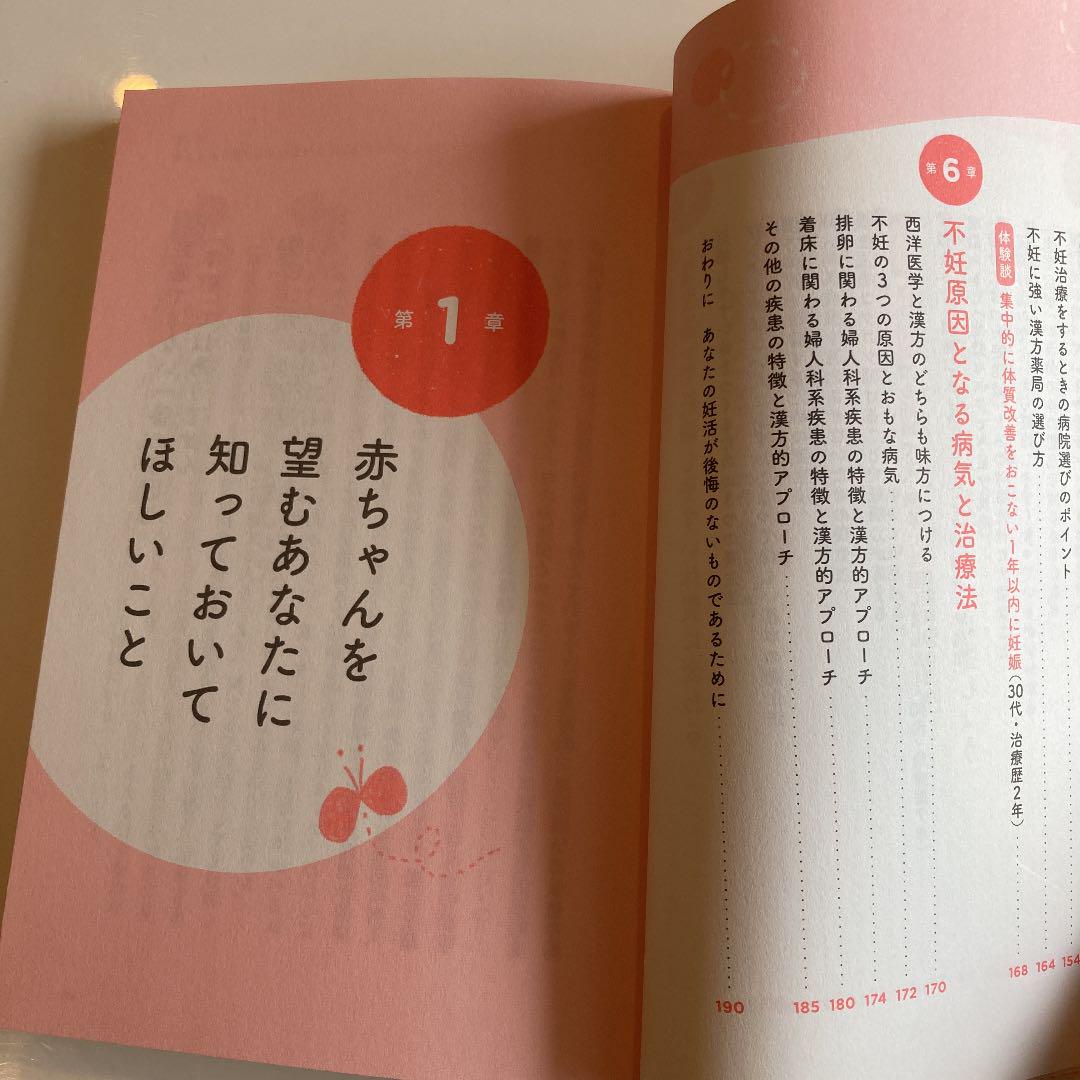 不妊治療をするときの病院選びのポイント 154
不妊に強い漢方薬局の選び方 164
体験談 集中的に体質改善をおこない1年以内に妊娠(30代・治療歴2年) 168
第6章
不妊原因となる病気と治療法
西洋医学と漢方のどちらも味方につける 170
不妊の3つの原因とおもな病気 172
排卵に関わる婦人科系疾患の特徴と漢方的アプローチ 174
着床に関わる婦人科系疾患の特徴と漢方的アプローチ 180
その他の疾患の特徴と漢方的アプローチ 185
おわりに あなたの妊活が後悔のないものであるために 190
第1章
赤ちゃんを
望むあなたに
知っておいて
ほしいこと